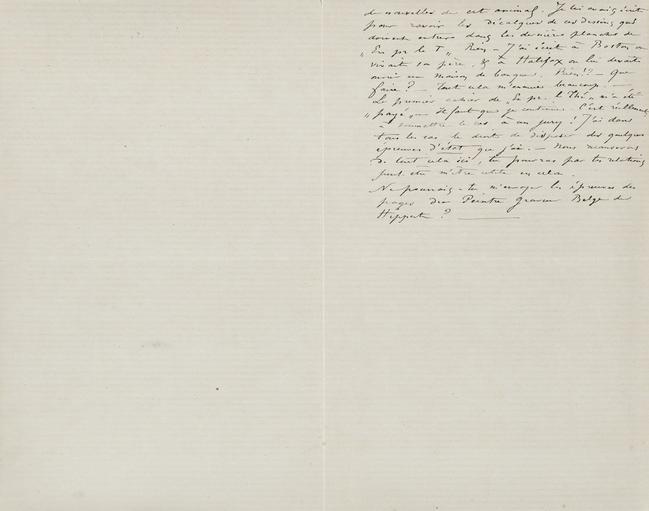 de nouvelles de cet animal. Je lui avais écrit
pour ravoir les décalques de ces dessins qui
doivent entrer dans les dernières planches de
"En pr le T". Rien – J'ai écrit à Boston où
vivait son père, & à Halifax où lui devait
ouvrir une maison de banque. Rien!? – Que
faire? – Tout cela m'énerve beaucoup. –
Le premier cahier de "En pr. le Thé" n'a été
"payé", – Il faut que je continue. C'est
à soumettre le cas à un jury! J'ai dans
tous les cas le droit de disposer des quelques
épreuves d'état que j'ai. – Nous
de tout cela ici, tu pourras par tes relations
peut être m'être utile en cela.
Ne pourrais-tu m'envoyer les épreuves des
pages du Peintre graveur Belge de
Hippert?